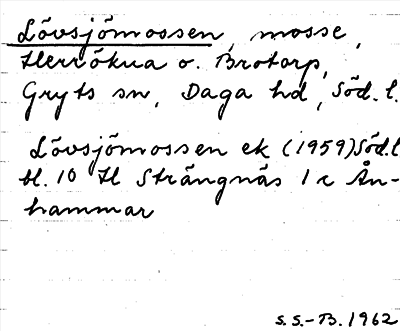 Lövsjömossen, mosse,
Herrökna o. Brotorp,
Gryts sn, Daga hd, Söd. l.
Lövsjömossen ek (1959) Söd. l
bl. 10 H Strängnäs 1 c Ån-
hammar
S.S.-B. 1962